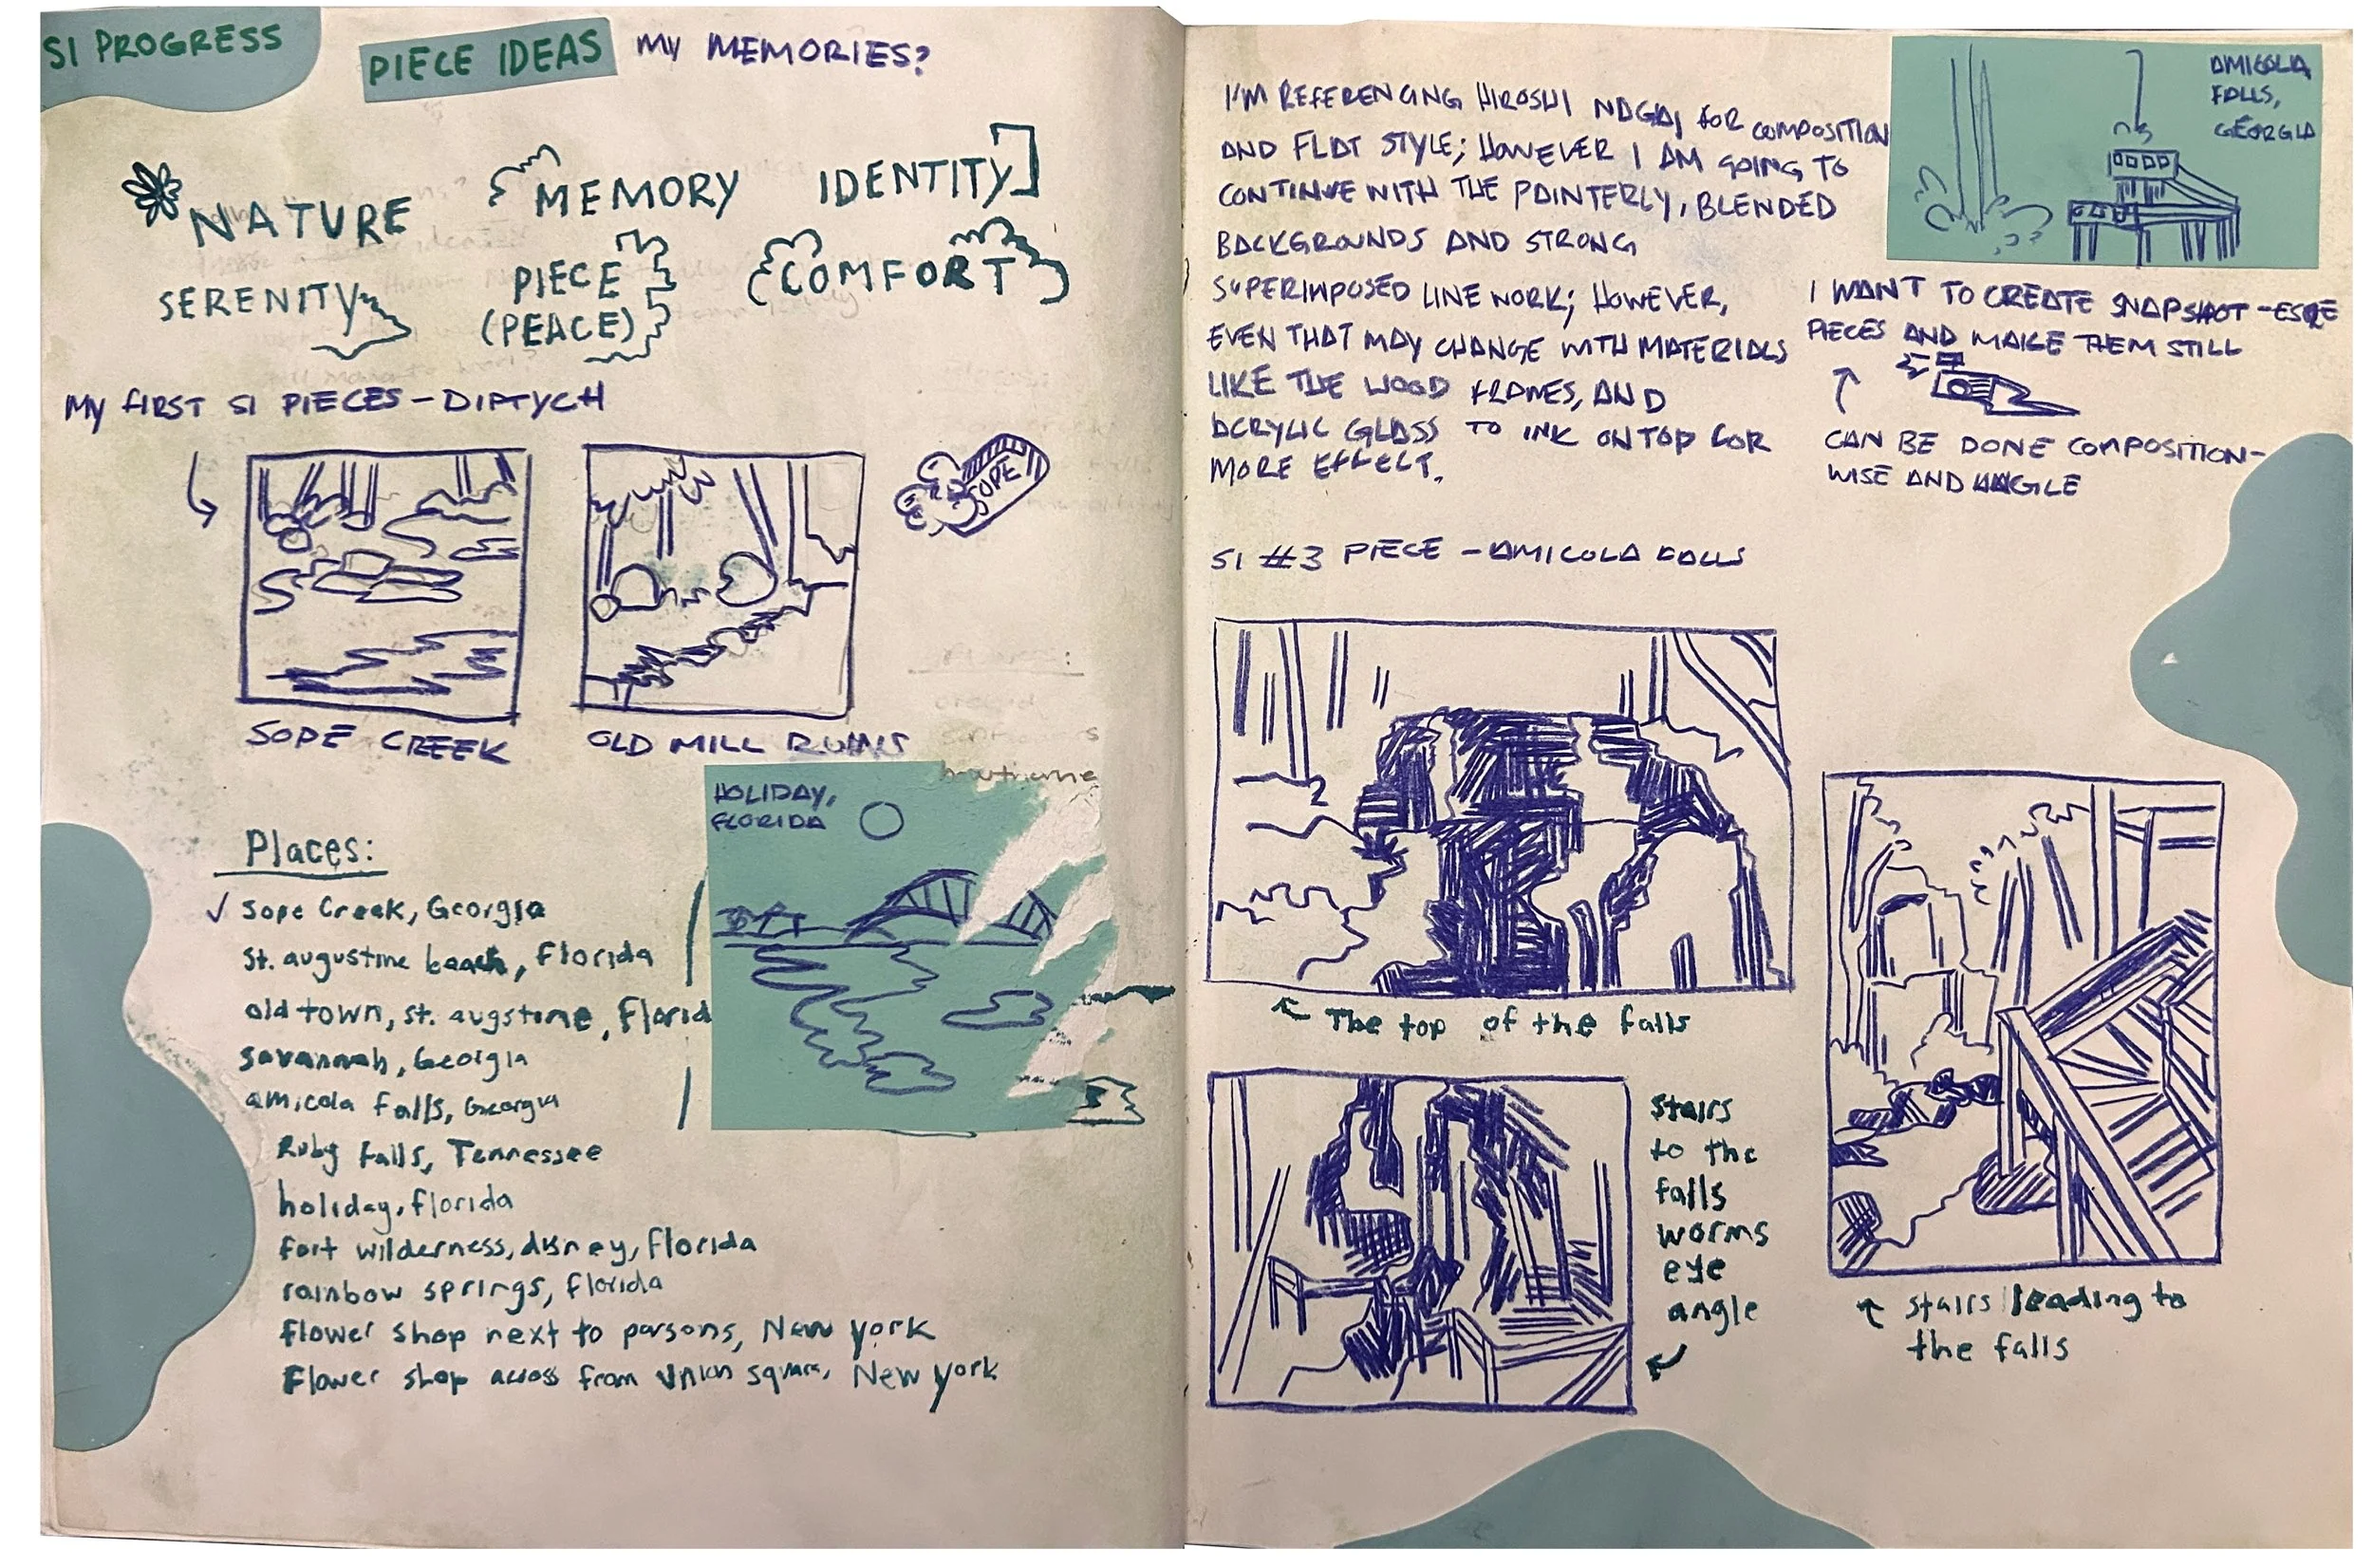 SI PROGRESS
PIECE IDEAS
MY MEMORIES?
NATURE
MEMORY
IDENTITY
SERENITY
PIECE
(PEACE)
COMFORT
MY FIRST SI PIECES - DIPTYCH
SOPE
SOPE CREEK
OLD MILL RUINS
HOLIDAY,
FLORIDA
Places:
✓ Sope Creek, Georgia
St. augustine beach, Florida
old town, st. augstine, Florid
savannah, Georgia
amicola falls, Georgia
Ruby falls, Tennessee
holiday, florida
fort wilderness, disney, florida
rainbow springs, florida
flower shop next to parsons, New york
Flower shop across from Union square, New york
I'M REFERENCING HIROSHI NAGAI FOR COMPOSITION
AND FLAT STYLE; HOWEVER I AM GOING TO
CONTINUE WITH THE PAINTERLY, BLENDED
BACKGROUNDS AND STRONG
SUPERIMPOSED LINE WORK; HOWEVER,
EVEN THAT MAY CHANGE WITH MATERIALS
LIKE THE WOOD FRAMES, AND
ACRYLIC GLASS TO INK ON TOP FOR
MORE EFFECT.
AMICOLA
FALLS,
GEORGIA
I WANT TO CREATE SNAPSHOT-ESQE
PIECES AND MAKE THEM STILL
CAN BE DONE COMPOSITION-
WISE AND ANGLE
SI #3 PIECE - AMICOLA FALLS
The top of the falls
Stairs
to the
falls
worms
eye
angle
stairs leading to
the falls